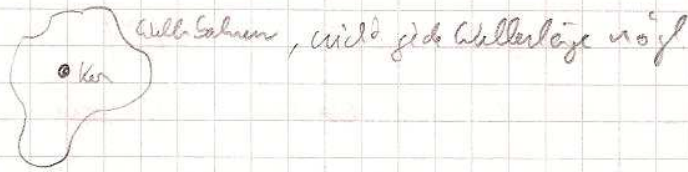 Wellenbahnen, nicht jede Wellenlänge mögl.
Kern